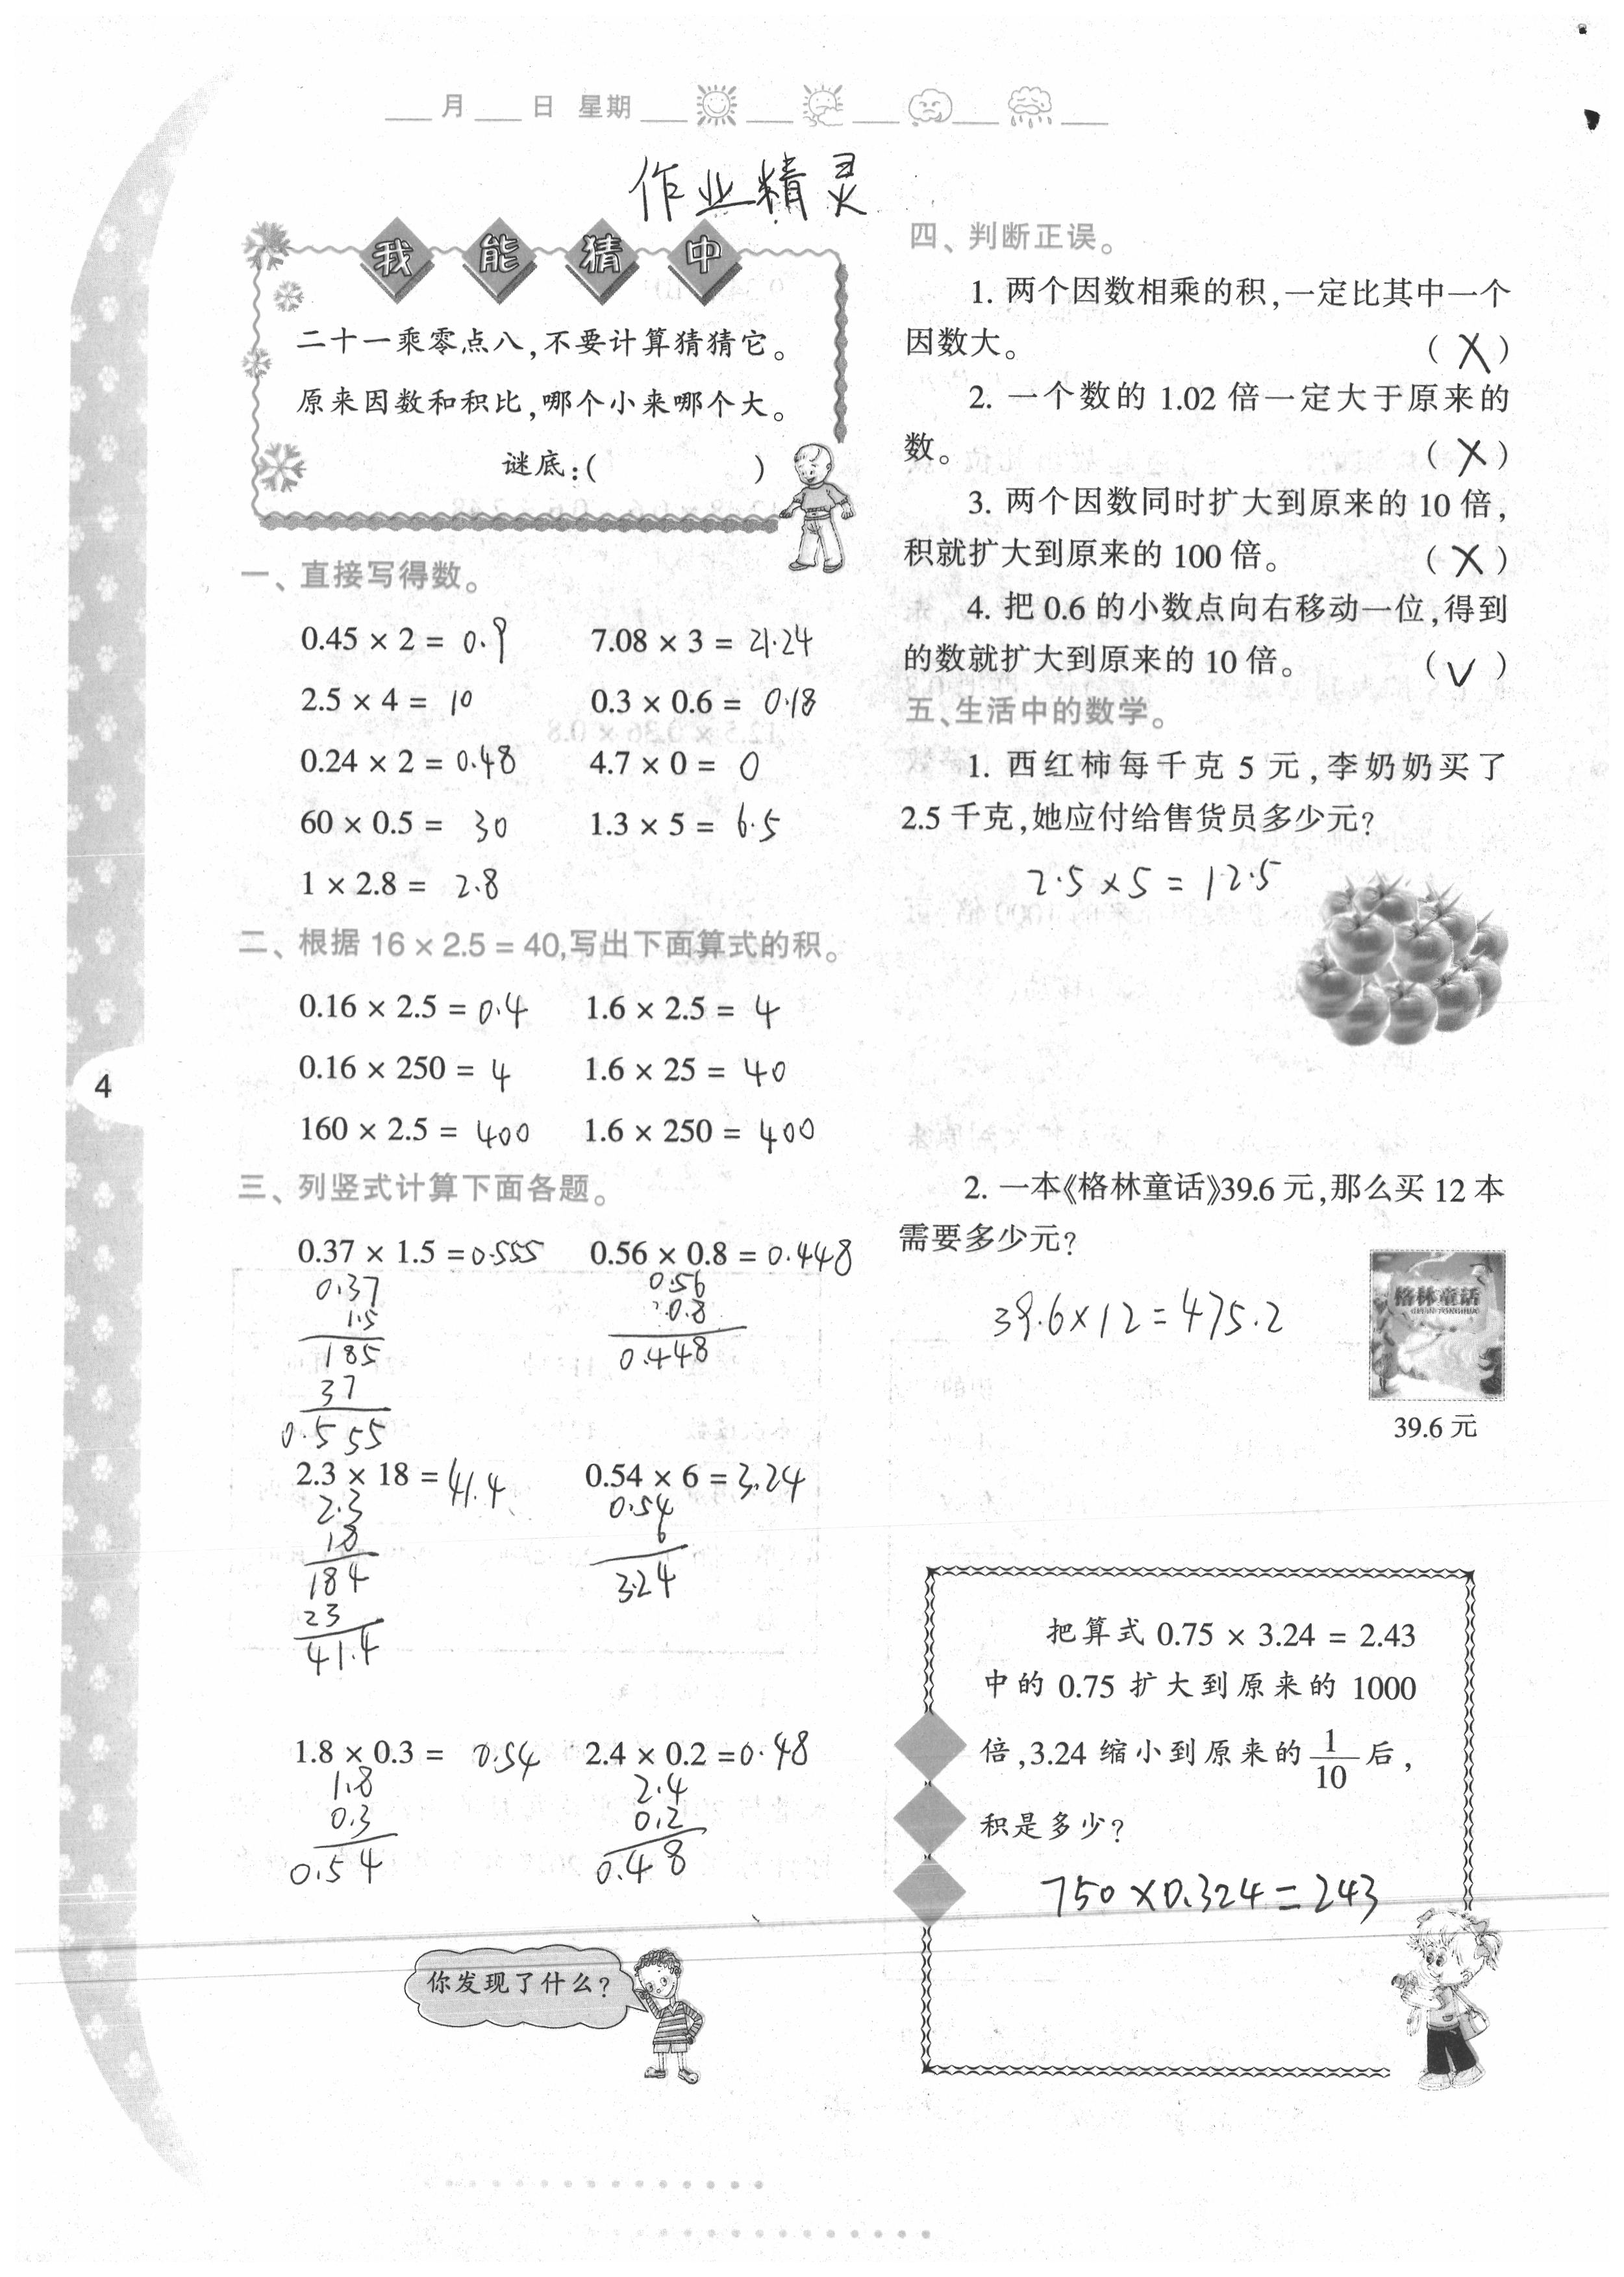 月 日 星期
作业精灵
我能猜中
二十一乘零点八,不要计算猜猜它。
原来因数和积比,哪个小来哪个大。
谜底:( )
一、直接写得数。
0.45 × 2 = 0.9 7.08 × 3 = 21.24
2.5 × 4 = 10 0.3 × 0.6 = 0.18
0.24 × 2 = 0.48 4.7 × 0 = 0
60 × 0.5 = 30 1.3 × 5 = 6.5
1 × 2.8 = 2.8
二、根据 16 × 2.5 = 40,写出下面算式的积。
0.16 × 2.5 = 0.4 1.6 × 2.5 = 4
0.16 × 250 = 4 1.6 × 25 = 40
160 × 2.5 = 400 1.6 × 250 = 400
三、列竖式计算下面各题。
0.37 × 1.5 = 0.555 0.56 × 0.8 = 0.448
0.37 0.56
1.5 0.8
185 0.448
37
0.555
2.3 × 18 = 41.4 0.54 × 6 = 3.24
2.3 0.54
18 6
184 3.24
23
41.4
1.8 × 0.3 = 0.54 2.4 × 0.2 = 0.48
1.8 2.4
0.3 0.2
0.54 0.48
你发现了什么?
4
四、判断正误。
1. 两个因数相乘的积,一定比其中一个
因数大。 (X)
2. 一个数的 1.02 倍一定大于原来的
数。 (X)
3. 两个因数同时扩大到原来的 10 倍,
积就扩大到原来的 100 倍。 (X)
4. 把 0.6 的小数点向右移动一位,得到
的数就扩大到原来的 10 倍。 (√)
五、生活中的数学。
1. 西红柿每千克 5 元,李奶奶买了
2.5 千克,她应付给售货员多少元?
2.5×5=12.5
2. 一本《格林童话》39.6 元,那么买 12 本
需要多少元?
39.6×12=475.2
格林童话
39.6 元
把算式 0.75 × 3.24 = 2.43
中的 0.75 扩大到原来的 1000
倍,3.24 缩小到原来的 1/10 后,
积是多少?
750×0.324=243